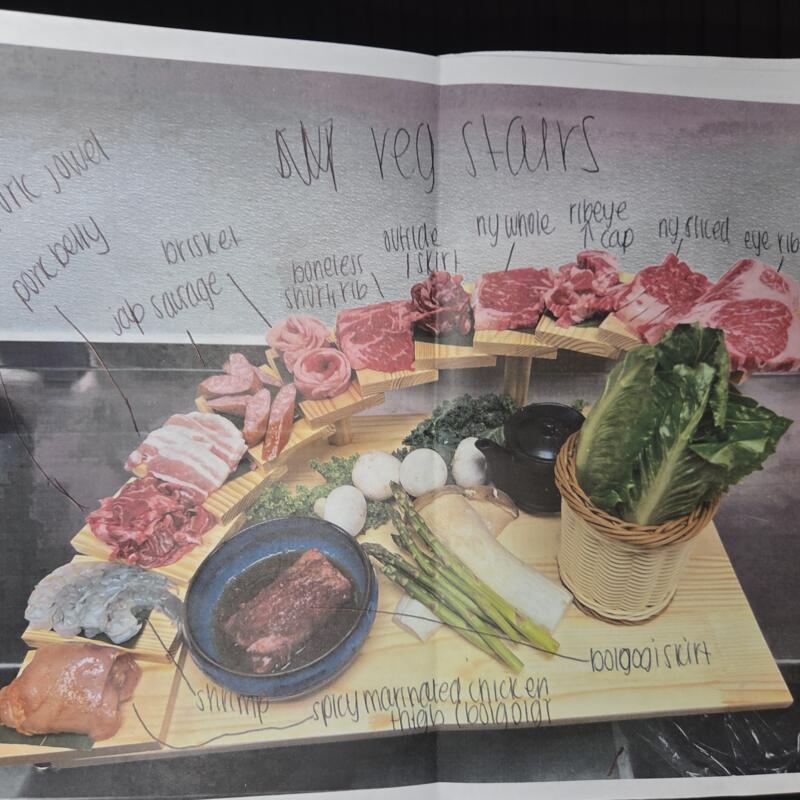 reg stairs
jowel
pork belly
brisket
jap sausage
boneless
short rib
outside
skirt
ny whole
ribeye
cap
ny sliced
eye rib
bolgogi skirt
shrimp
spicy marinated chicken
thigh